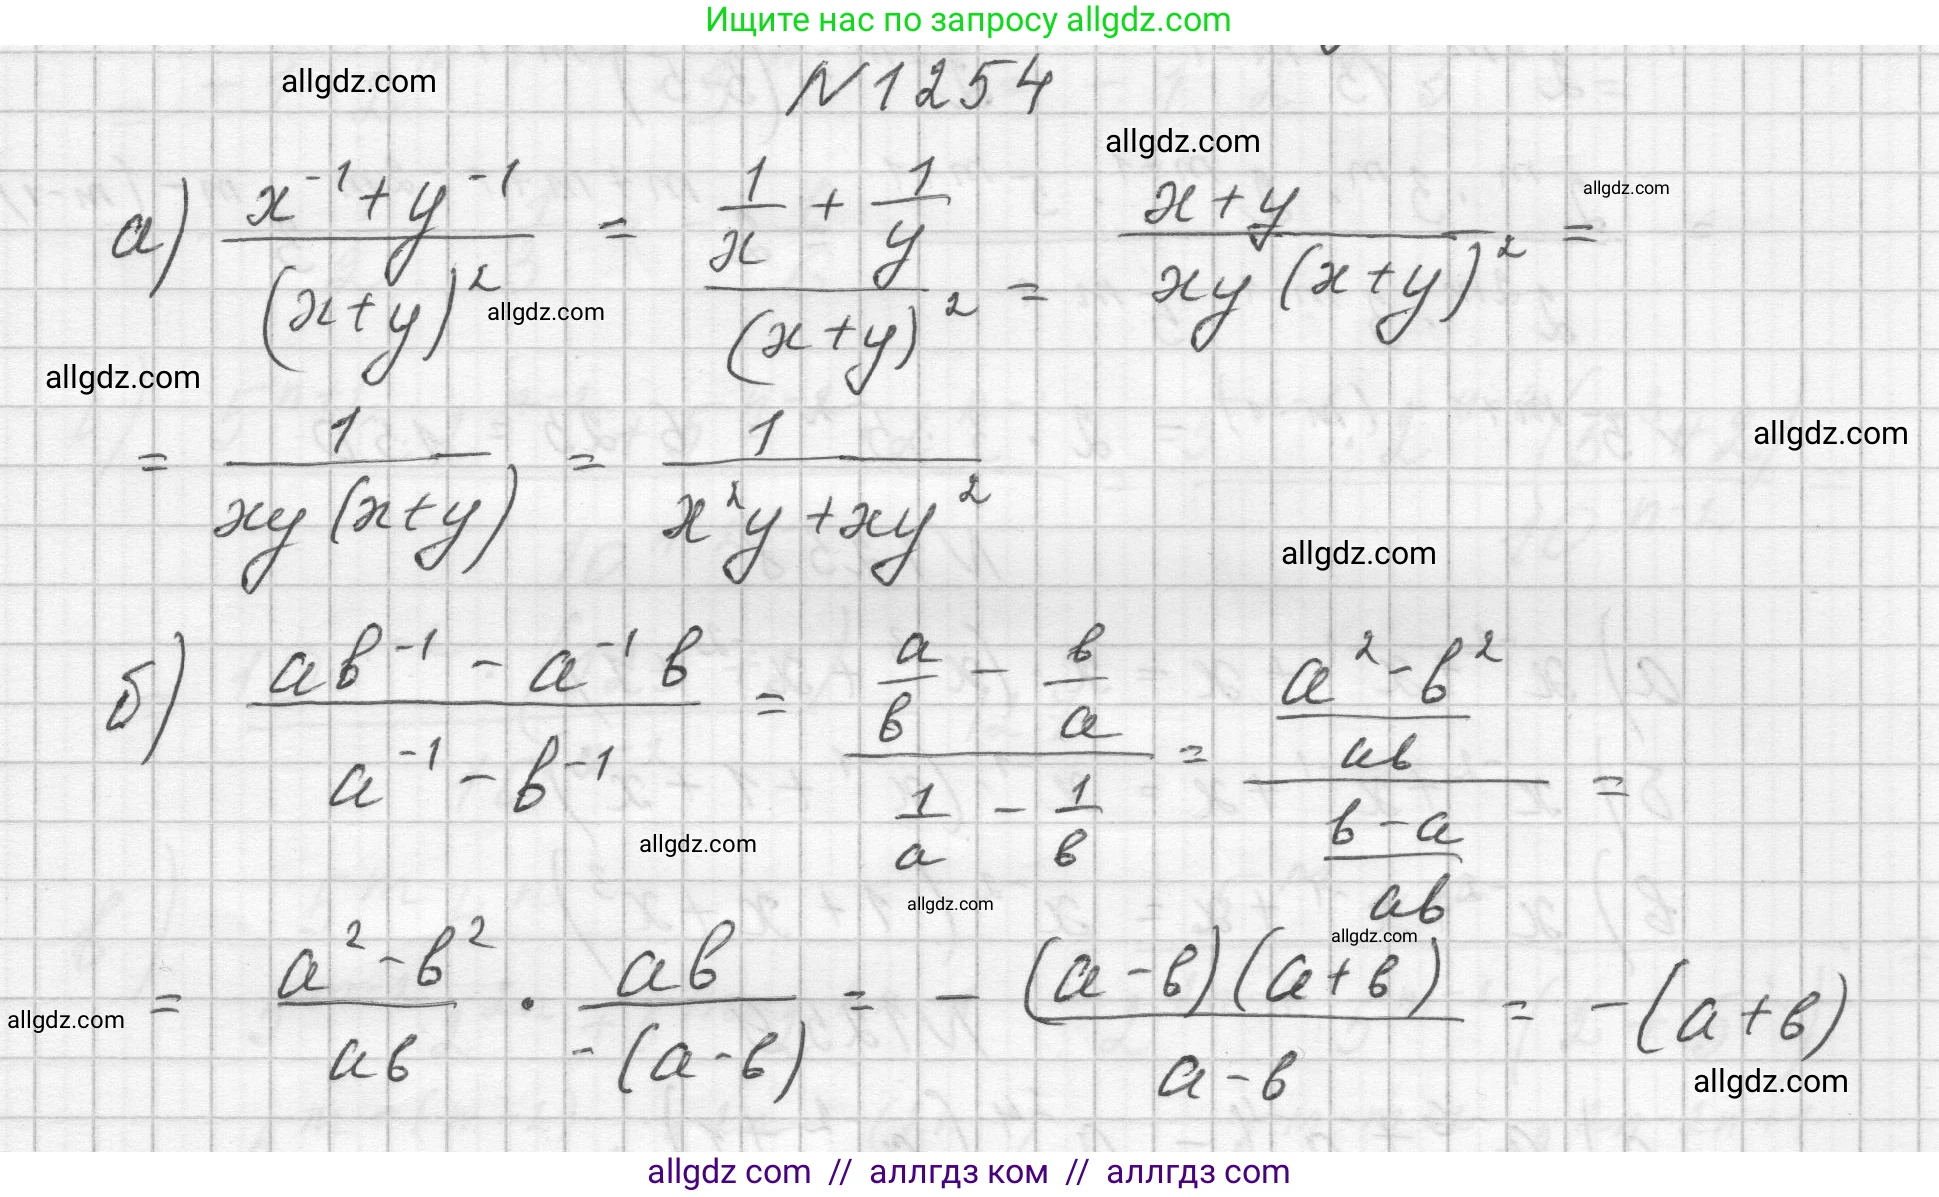 Ищите нас по запросу allgdz.com
allgdz.com
N1254
allgdz.com
allgdz.com
а) (x⁻¹+y⁻¹)/(x+y)² = (1/x + 1/y)/(x+y)² = (x+y)/(xy(x+y)²) =
allgdz.com
allgdz.com
allgdz.com
= 1/(xy(x+y)) = 1/(x²y+xy²)
allgdz.com
б) (ab⁻¹ - a⁻¹b)/(a⁻¹ - b⁻¹) = (a/b - b/a)/(1/a - 1/b) = ((a²-b²)/(ab))/((b-a)/(ab)) =
allgdz.com
allgdz.com
allgdz.com
= (a²-b²)/(ab) · (ab)/(-(a-b)) = - ((a-b)(a+b))/(a-b) = -(a+b)
allgdz.com
allgdz.com
allgdz com // аллгдз ком // аллгдз com